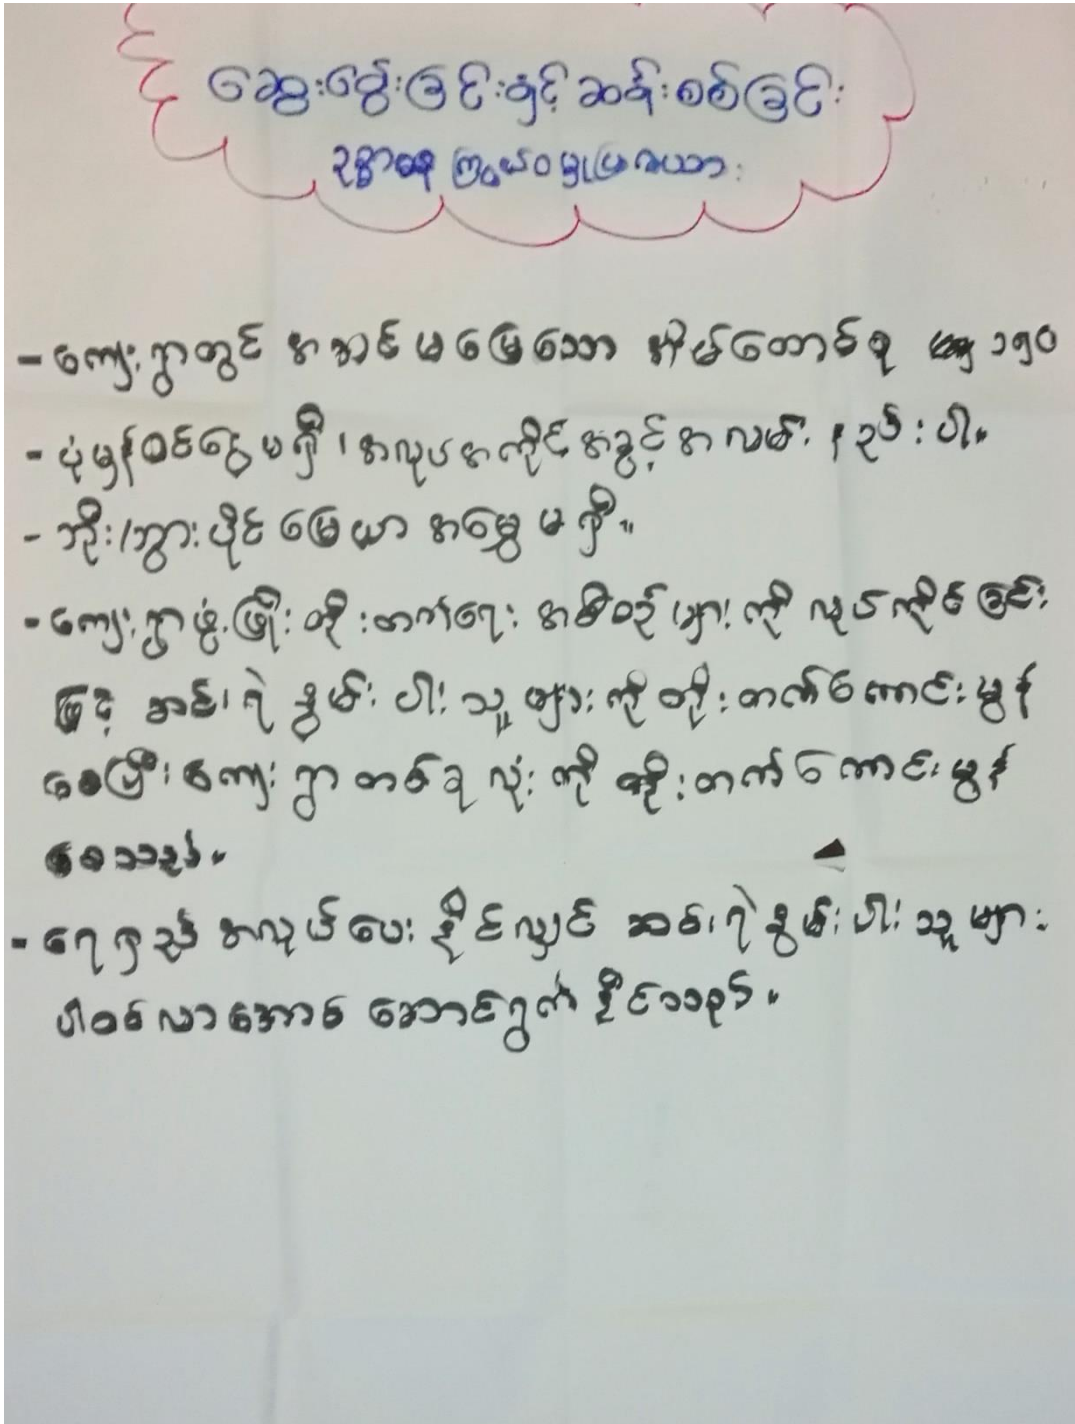 ဆွေးနွေးခြင်းနှင့်ဆန်းစစ်ခြင်း
- ကျေးရွာတွင် အဆင်မပြေသော အိမ်ထောင်စု ၁၅၀
- ပုံမှန်ဝင်ငွေမရှိ၊ အလုပ်အကိုင်အခွင့်အလမ်း နည်းပါး
- ဘိုး/ဘွားပိုင် မြေယာ အမွေ မရှိ။
- ကျေးရွာဖွံ့ဖြိုး တိုးတက်ရေး အစီစဉ်များကို လုပ်ကိုင်ခြင်း
ဖြင့် ဆင်းရဲ နွမ်းပါးသူများကို တိုးတက်ကောင်းမွန်
စေပြီး ကျေးရွာတစ်ခုလုံးကို တိုးတက်ကောင်းမွန်
စေသည်။
- ရေရှည် အလုပ်ပေးနိုင်လျှင် ဆင်းရဲနွမ်းပါးသူများ
ပါဝင်လာအောင် ဆောင်ရွက်နိုင်သည်။